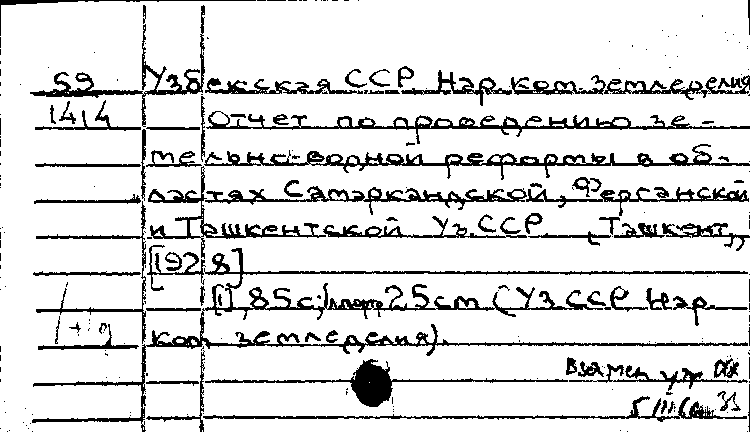 59 Узбекская ССР. Нар. ком. земледелия
1414 Отчет по проведению зе-
мельно-водной реформы в об-
ластях Самаркандской, Ферганской
и Ташкентской Уз.ССР. [Ташкент,
[1928]
[1], 85 с; 25 cm (Уз.ССР. Нар.
ком. земледелия).
Взамен